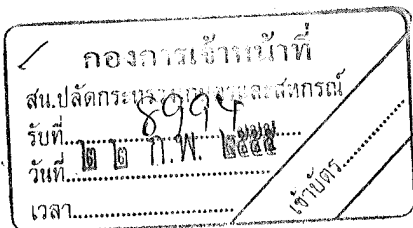 กองการเจ้าหน้าที่
สน.ปลัดกระทรวงเกษตรและสหกรณ์
รับที่ 8994
วันที่ ๒ ๒ ก.พ. ๒๕๕๕
เวลา
เข้าบัตร